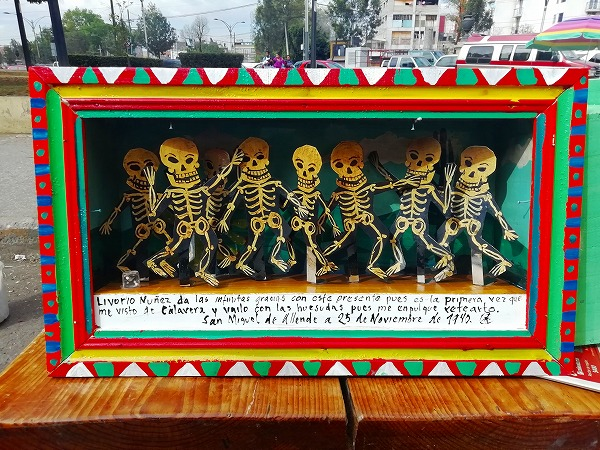 Livorio Nuñez da las infinitas gracias con este presente pues es la primera vez que
me visto de Calavera y vailo con las huesudas pues me enpulque retearto.
San Miguel de Allende a 25 de Noviembre de